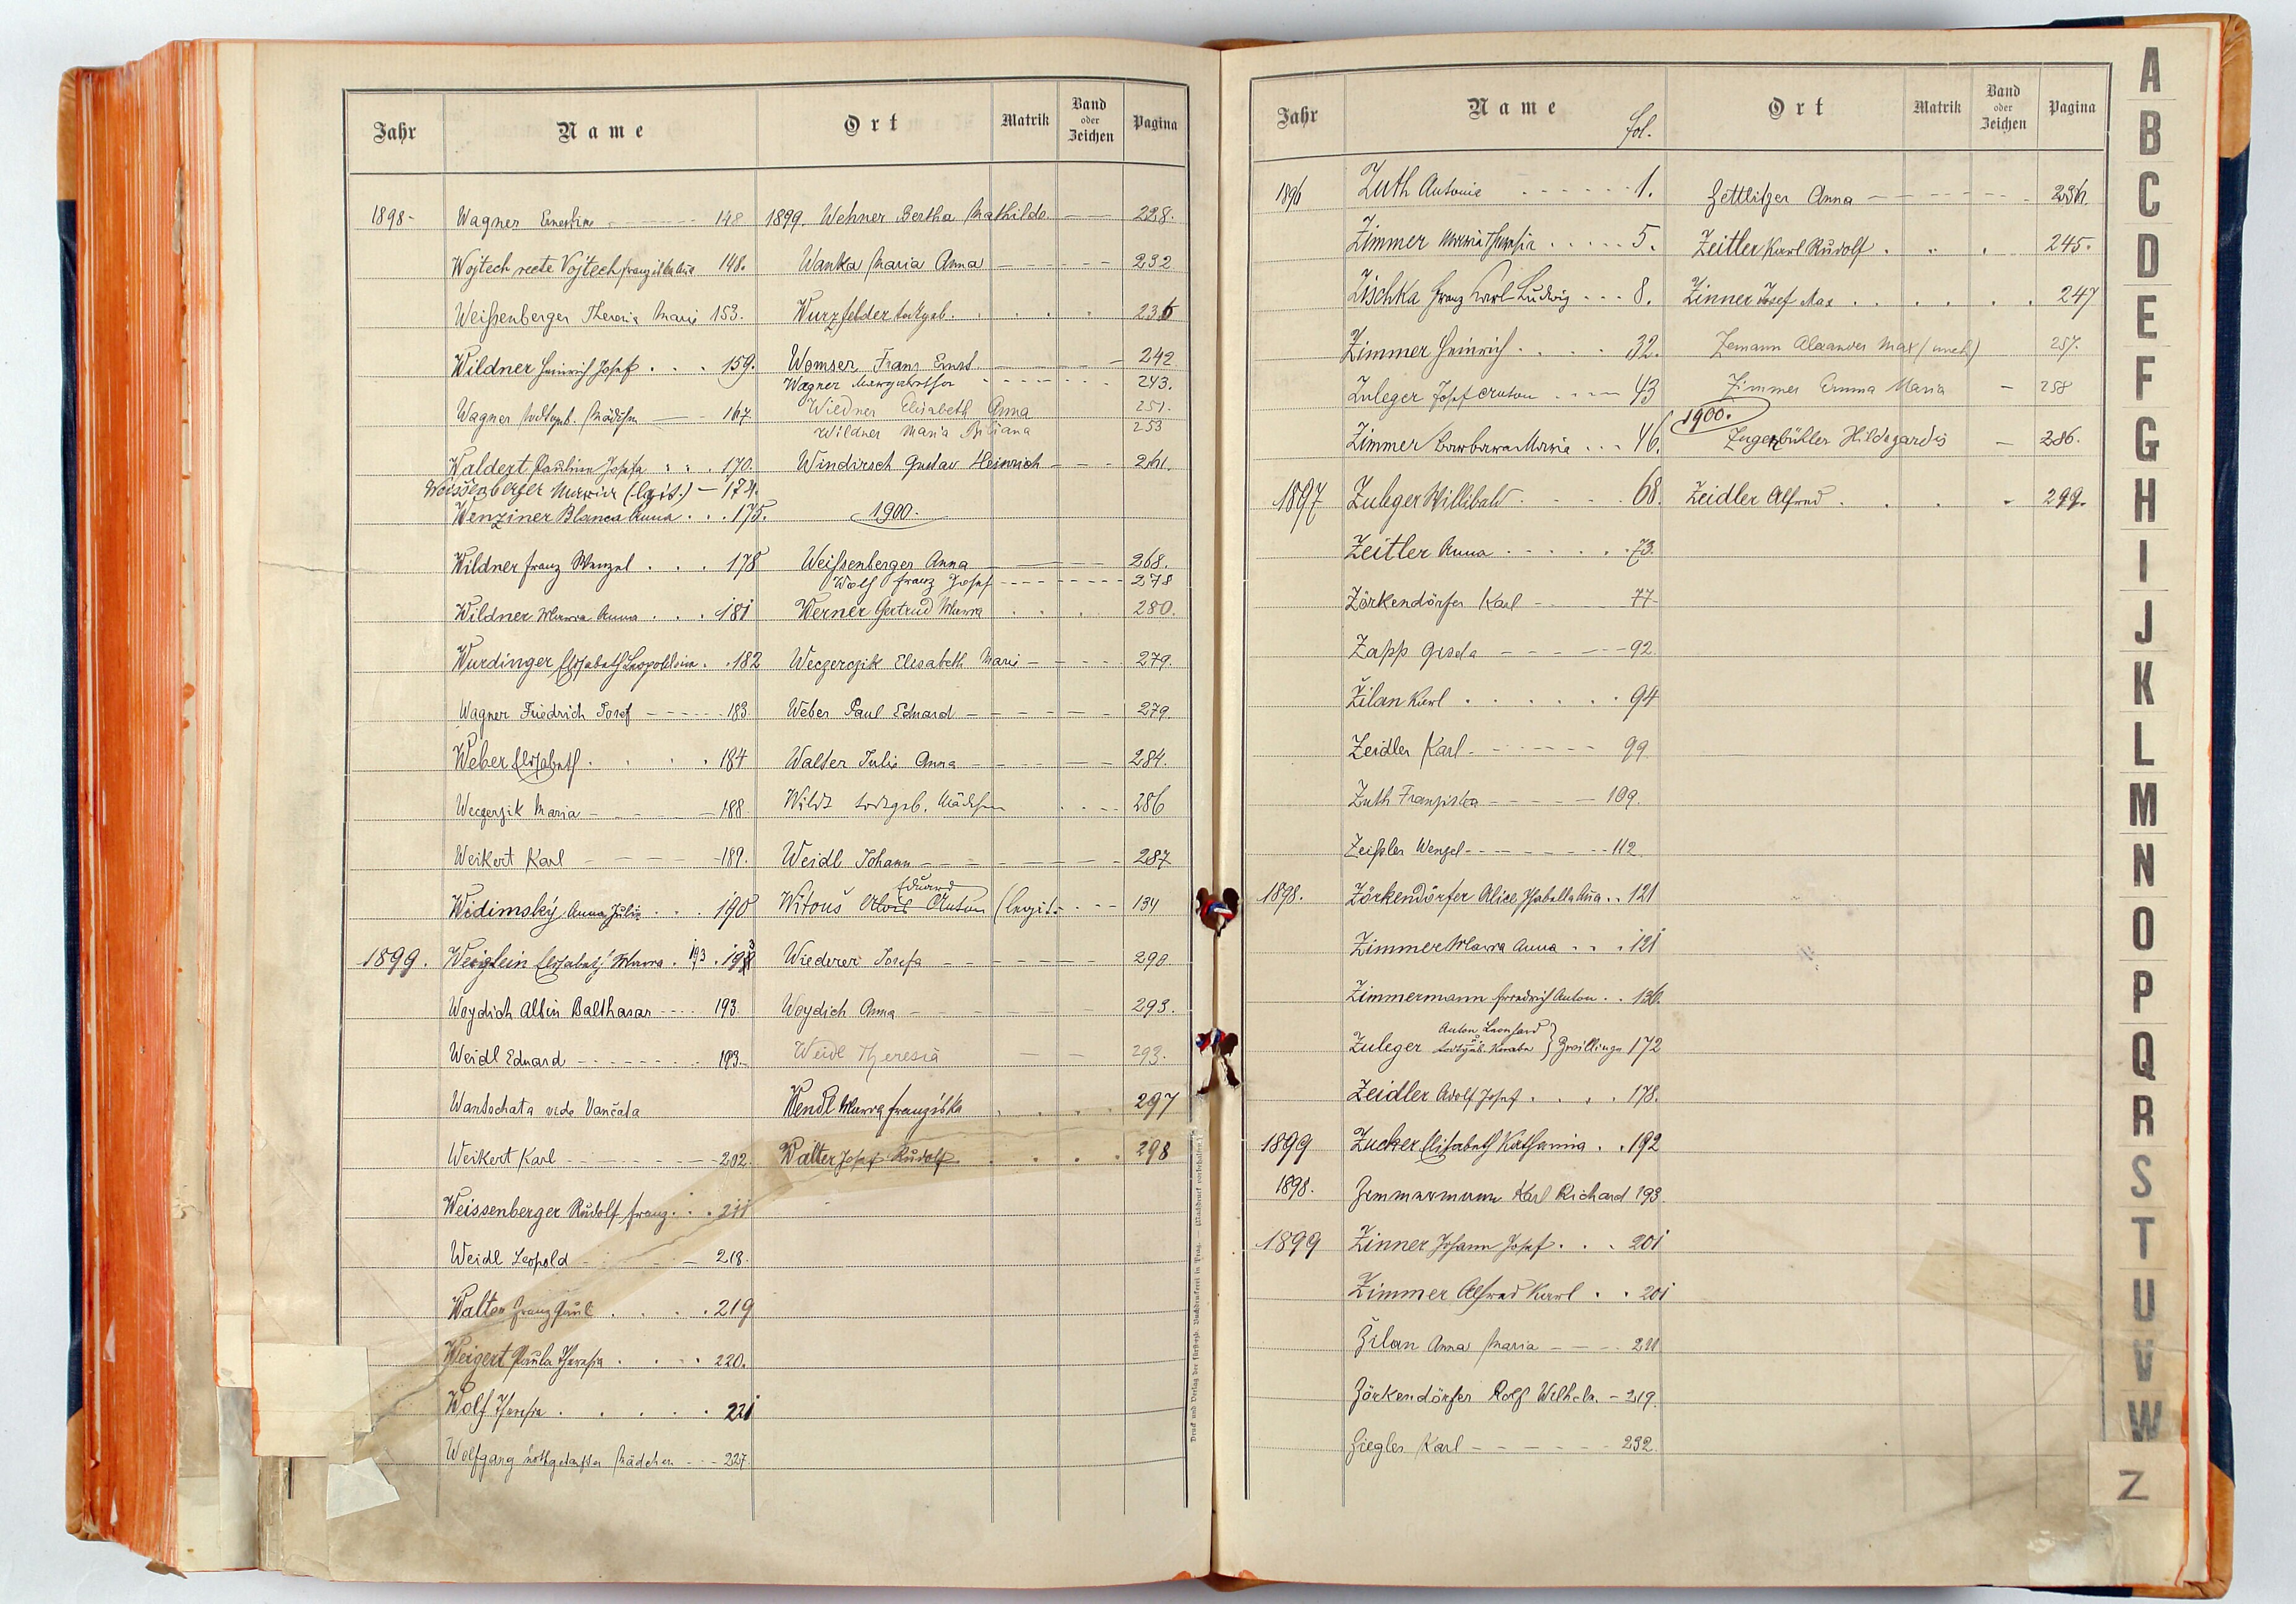 Jahr Name Ort Matrik Band oder Zeichen Pagina
1898- Wagner Ernestine 148
Wojtech recte Vojtech 148.
Weißenberger Theresia Marie 153.
Wildner Heinrich Josef . . . 159.
Wagner Mädchen 167
Waldert Paulina Josefa . . . 170.
Weissenberger Maria (legit.) - 174.
Wenziner Blanca Anna . . . 175.
Wildner Franz Wenzel . . . 178
Wildner Maria Anna . . . 181
Wurdinger Elisabeth Leopoldine . . 182
Wagner Friedrich Josef - - - - - 183.
Weber Elisabeth . . . . 184
Weczerzik Maria - - - - - 188.
Weikert Karl - - - - - 189.
Widimský Anna Julie . . . 190
1899. Weiglein Elisabeth Maria . 193 .
Woydich Albin Balthasar - - - - 193.
Weidl Eduard - - - - - - - - 193.
Wantschata vide Vančata
Weikert Karl - - - - - - 202.
Weissenberger Rudolf Franz . . . 211
Weidl Leopold - - - - 218.
Walter Franz Paul . . . . 219
Weigert Paula Theresia . . . . 220.
Wolf Theresia . . . . . . 221
Wolfgang nothgetaufter Mädchen - - - 227.
1899. Wehner Bertha Mathilde - - 228.
Wanka Maria Anna - - - - - 232
Wurzfelder todtgeb. . . . . 236
Womser Franz Ernst - - - - - 242
Wagner - - - - - - - 243.
Wiedner Elisabeth Anna 251.
Wildner Maria Bibiana 253
Windirsch Gustav Heinrich - - - 261.
1900.
Weißenberger Anna - - - - 268.
Wolf Franz Josef - - - - - - - - - 278
Werner Gertrud Maria . . . . 280.
Weczerzik Elisabeth Marie - - - - 279.
Weber Paul Eduard - - - - - - 279.
Walter Julie Anna - - - - - - 284.
Wildt todtgeb. Mädchen . - - - 286
Weidl Johann - - - - - - - - 287
Eduard
Witouš Alois Anton (legit. - - - 134
Wiederer Josefa - - - - - - - 290
Woydich Anna - - - - - - 293.
Weidl Theresia - - 293.
Wendl Maria Franziska . . . . 297
Walter Josef Rudolf . . . . . 298
Druck und Verlag der fürsterzb. Buchdruckerei in Prag. — (Nachdruck vorbehalten.)
Jahr Name fol. Ort Matrik Band oder Zeichen Pagina
1896 Zuth Antonie - - - - - - 1.
Zimmer Maria Theresia . . . . . 5.
Zischka Franz Karl Ludwig - - - 8.
Zimmer Heinrich . . . . 32.
Zuleger Josef Anton . . - - - 43
Zimmer Barbara Maria . . . 46.
1897 Zuleger Willibald . . . . 68.
Zeitler Anna . . . . . . 73.
Zörkendörfer Karl - - - - - 77.
Zapp Gisela - - - - - - - 92.
Žilan Karl . . . . . . 94
Zeidler Karl - - - - - - 99.
Zuth Franziska - - - - - 109.
Zeißler Wenzel - - - - - - - - 112.
1898. Zörkendörfer Alice Isabella Ana . . 121
Zimmer Maria Anna . . . 121
Zimmermann Friedrich Anton . . 136.
Anton Leonhard
Zuleger todtgeb. Knabe } Zwillinge 172
Zeidler Adolf Josef . . . . 178.
1899 Zucker Elisabeth Katharina . . 192
1898. Zimmermann Karl Richard 193.
1899 Zinner Johann Josef . . . 201
Zimmer Alfred Karl . . 201
Žilan Anna Maria - - - - 211
Zörkendörfer Rolf Wilhelm. - 219.
Ziegler Karl - - - - - - 232.
Zettlitzer Anna - - - - - - - 236.
Zeitler Karl Rudolf . . . . 245.
Zinner Josef Max . . . . . . 247
Zemann Alexander Max (uneh.) 257.
Zimmer Emma Maria - 258
1900.
Hildegardis - 286.
Zeidler Alfred . . . . 299.
A
B
C
D
E
F
G
H
I
J
K
L
M
N
O
P
Q
R
S
T
U
V
W
Z